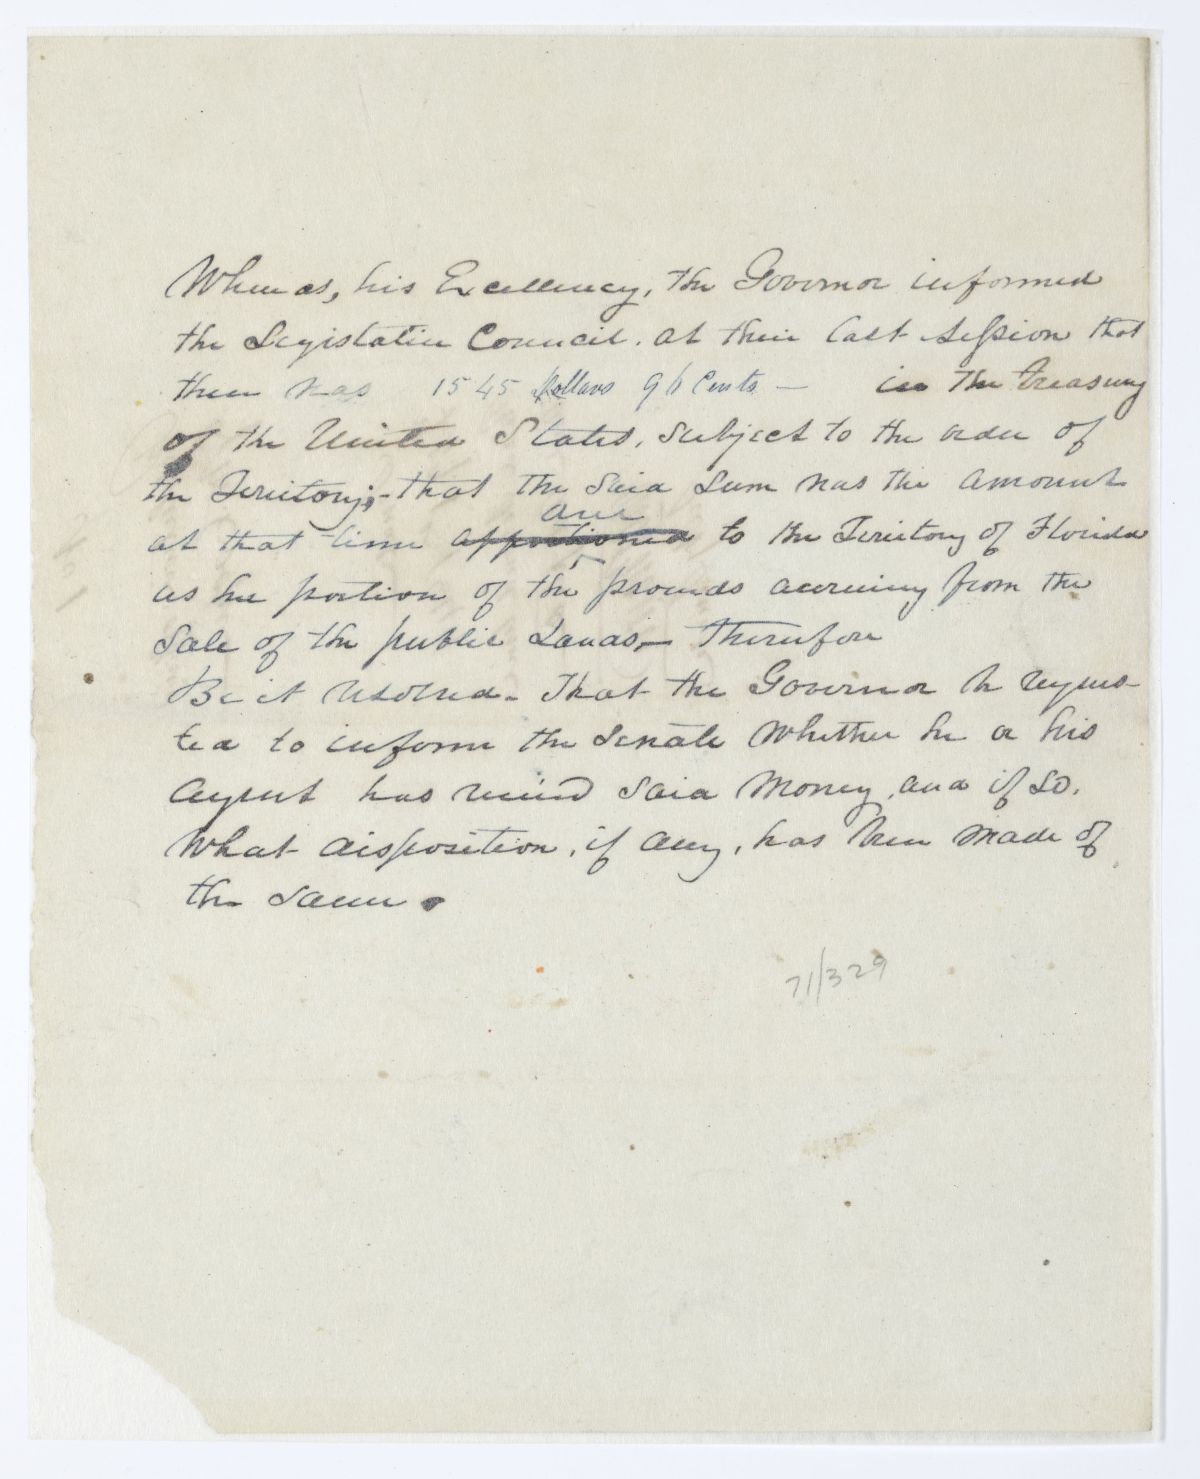 Whereas, his Excellency, the Governor informed
the Legislative Council, at their last session that
there was 1545 Dollars 96 Cents — in the Treasury
of the United States, subject to the order of
the Territory;- that the said sum was the amount
due
at that time apportioned to the Territory of Florida
as her portion of the proceeds accruing from the
sale of the public Lands,— Therefore
Be it resolved- That the Governor be reques-
ted to inform the Senate whether he or his
agent has received said money, and if so,
what disposition, if any, has been made of
the same.
71/329